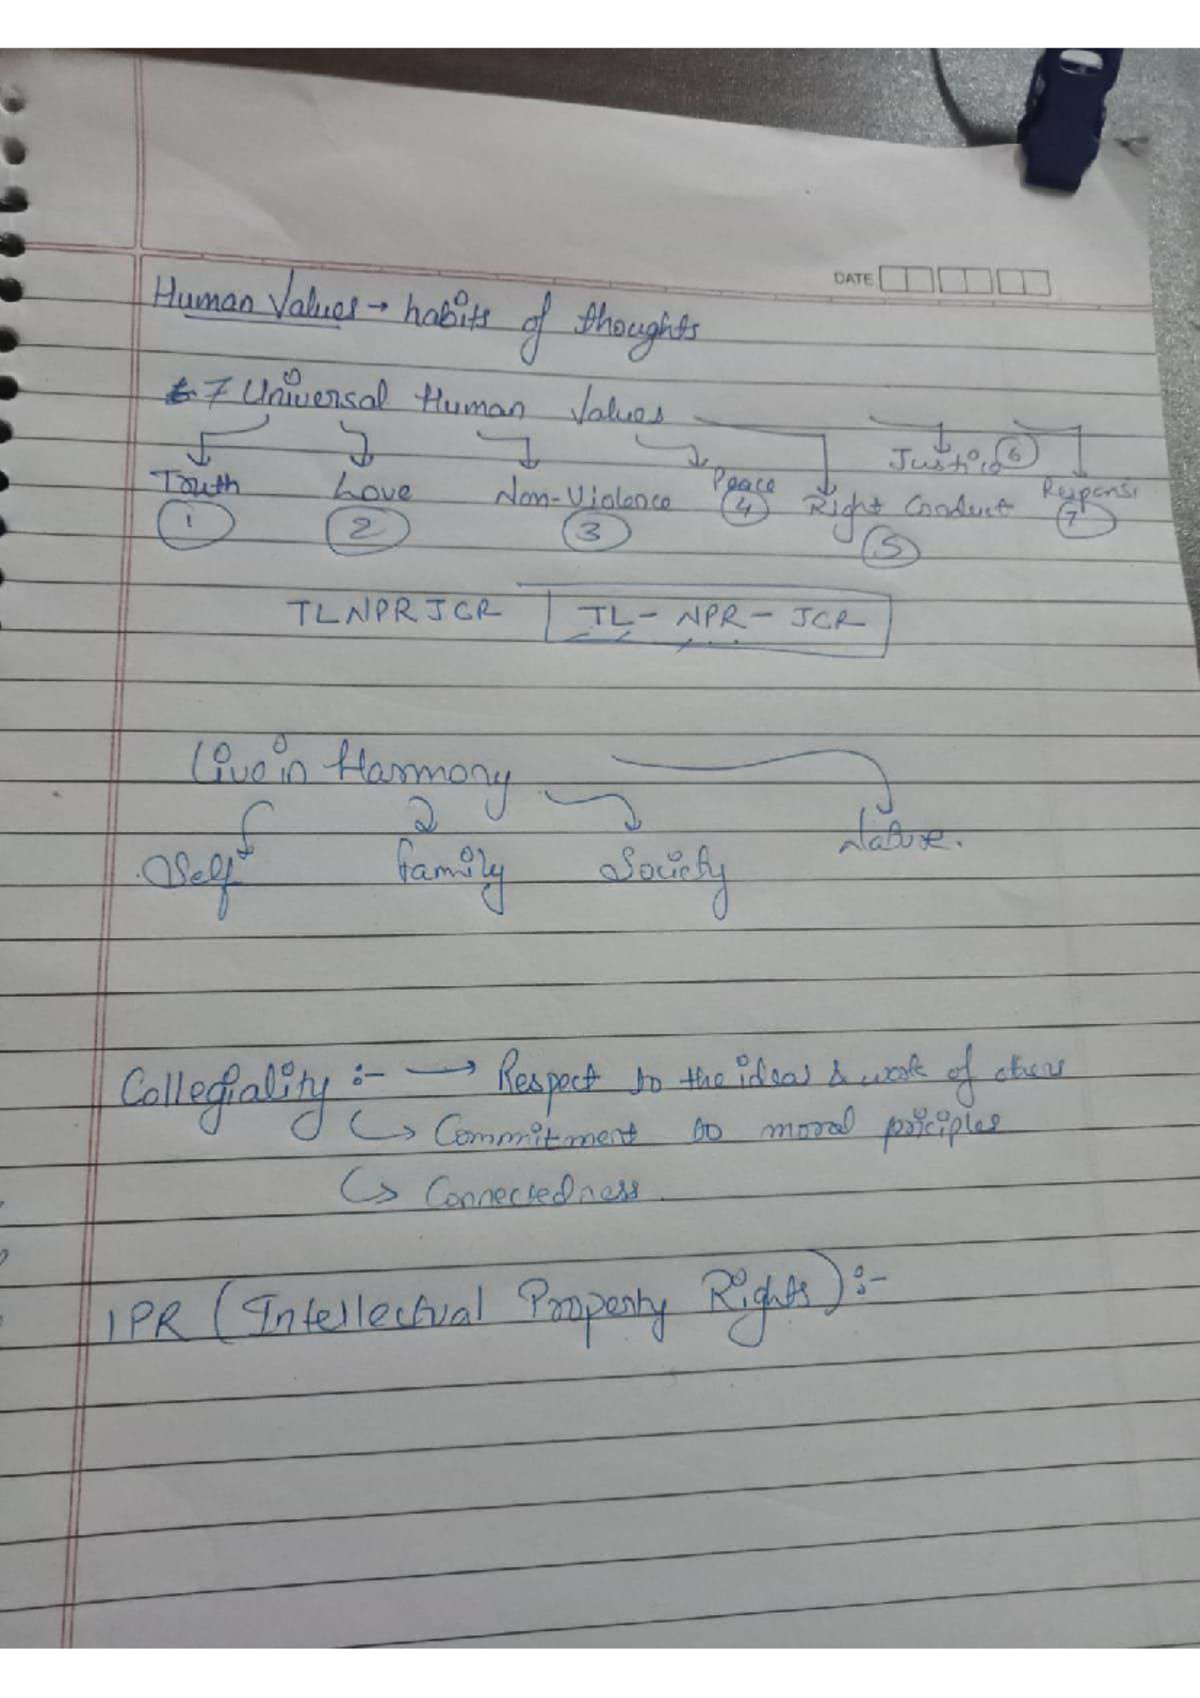 DATE
Human Values → habits of thoughts
7 Universal Human Values
Truth Love Non-Violence Peace Right Conduct Justice Responsi
1 2 3 4 5 6 7
TLNPRJCR TL - NPR - JCR
Live in Harmony
Self family Society Nature.
Collegiality :- → Respect to the ideas & work of others
↳ Commitment to moral priciples
↳ Connectedness
IPR (Intellectual Property Rights) :-